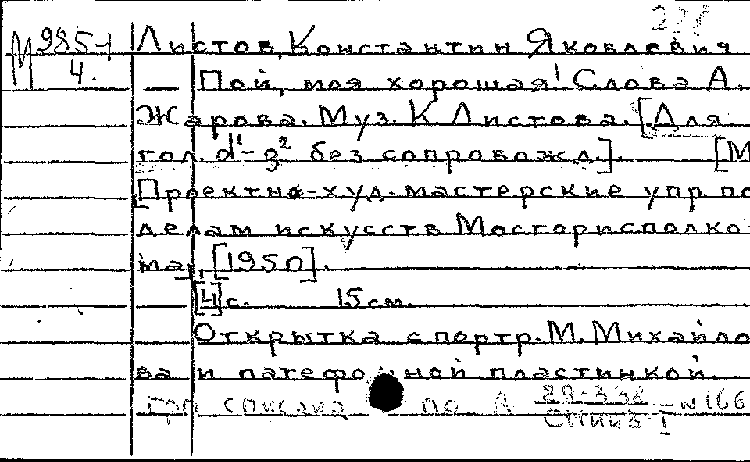 278
М 985-1 Листов, Константин Яковлевич
4. — Пой, моя хорошая! Слова А.
Жарова. Муз. К Листова. [Для
гол. d¹-g² без сопровожд.]. [М
Проектно-худ. мастерские упр. по
делам искусств Мосгорисполко-
ма], [1950].
[4] с. 15 см.
Открытка с портр. М. Михайло
ва и патефонной пластинкой.
списана по А 29-338
№ 166